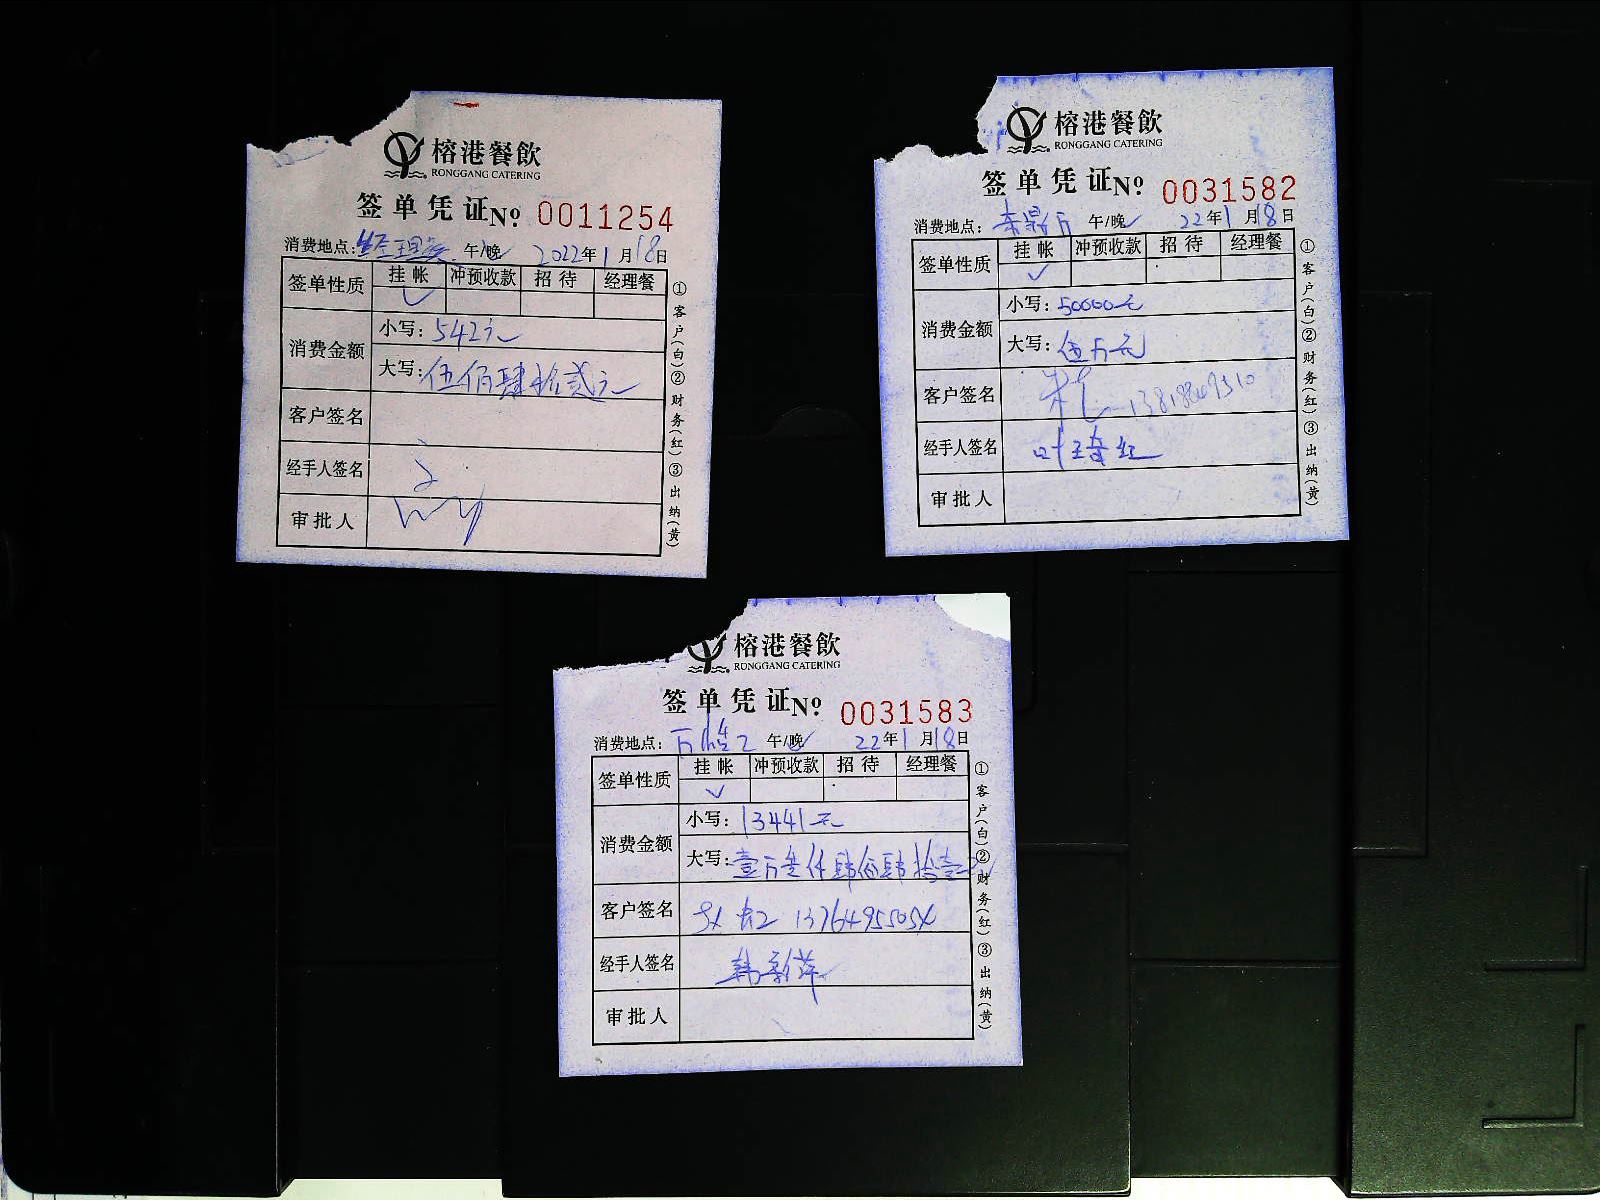 榕港餐飲
RONGGANG CATERING
签单凭证 Nº 0011254
消费地点: 经理餐 午/晚 2022年1月18日
签单性质 挂帐 冲预收款 招待 经理餐
✓
消费金额
小写: 542元
大写: 伍佰肆拾贰元
客户签名
经手人签名
审批人
①客户(白)②财务(红)③出纳(黄)
榕港餐飲
RONGGANG CATERING
签单凭证 Nº 0031582
消费地点: 午/晚 22年1月18日
签单性质 挂帐 冲预收款 招待 经理餐
✓
消费金额
小写: 50000元
大写: 伍万元
客户签名
经手人签名 叶琦红
审批人
①客户(白)②财务(红)③出纳(黄)
榕港餐飲
RONGGANG CATERING
签单凭证 Nº 0031583
消费地点: 午/晚 22年1月18日
签单性质 挂帐 冲预收款 招待 经理餐
✓
消费金额
小写: 13441元
大写: 壹万叁仟肆佰肆拾壹元
客户签名
经手人签名
审批人
①客户(白)②财务(红)③出纳(黄)